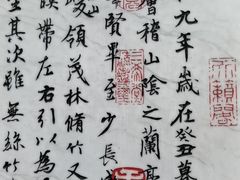 九年歲在癸丑暮
稽山陰之蘭亭
賢畢至少長咸
峻領茂林脩竹又
映帶左右引以為
坐其次雖無絲竹